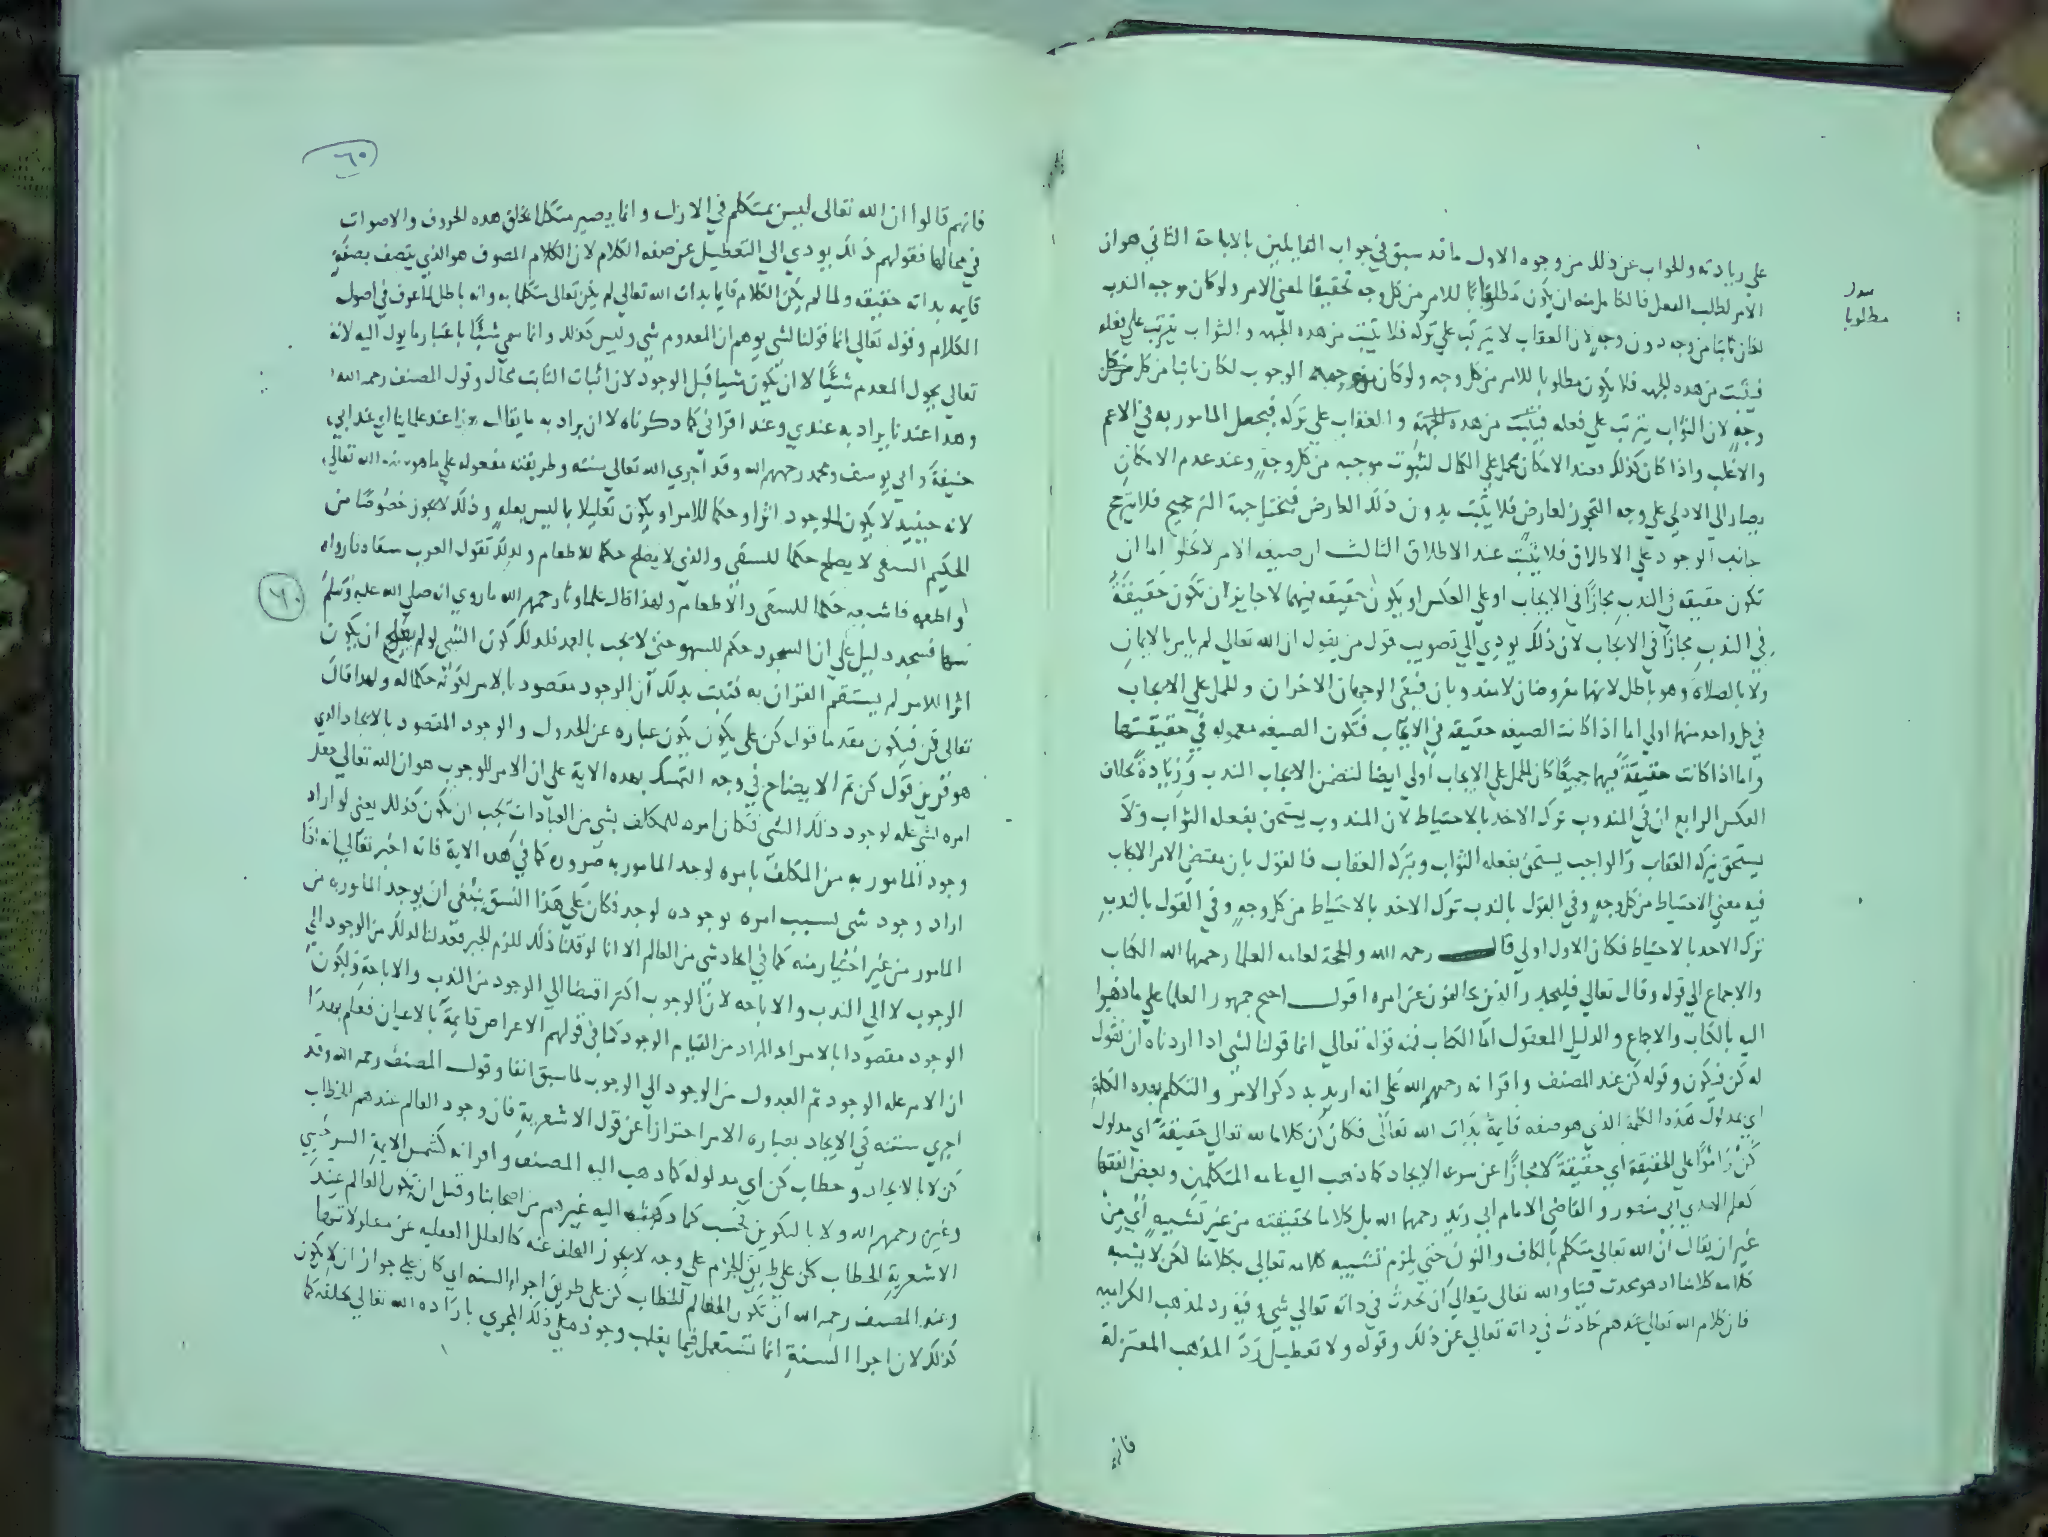 على زيادته والجواب عن ذلك من وجوه الاول ما قد سبق في جواب القايلين بالاباحة الثاني هو ان
الامر لطلب الفعل فالكامل منه ان يكون مطلوبا للامر من كل وجه تحقيقا لمعنى الامر ولو كان موجبه الندب
لكان ثابتا من وجه دون وجه لان العقاب لا يترتب على تركه فلا يثبت من هذه الجهة والثواب يترتب على فعله
فيثبت من هذه الجهة فلا يكون مطلوبا للامر من كل وجه ولو كان الوجوب لكان ثابتا من كل
وجه لان الثواب يترتب على فعله فيثبت من هذه الجهة والعقاب على تركه فيجعل المامور به في الاعم
والاغلب واذا كان كذلك فعند الامكان يحمل على الكمال لثبوت موجبه من كل وجه وعند عدم الامكان
يصار الى الادنى على وجه التجوز لعارض فلا يثبت بدون ذلك العارض جهة الترجيح فلا يترجح
جانب الوجود على الاطلاق فلا يثبت عند الاطلاق الثالث ان صيغه الامر لا تخلوا اما ان
تكون حقيقه في الندب مجازا في الايجاب او على العكس او يكون حقيقه فيهما لا جايز ان تكون حقيقة
في الندب مجازا في الايجاب لان ذلك يودي الى تصويب قول من يقول ان الله تعالى لم يامر بالايمان
ولا بالصلاة وهو باطل لانهما مفروضان لا مندوبان فبقي الوجهان الاخران والحمل على الايجاب
في كل واحد منهما اولى اما اذا كانت الصيغه حقيقه في الايجاب فتكون الصيغه معموله في حقيقتها
واما اذا كانت حقيقة فيهما جميعا كان الحمل على الايجاب اولى ايضا لتضمن الايجاب الندب وزيادة بخلاف
العكس الرابع ان في المندوب ترك الاخذ بالاحتياط لان المندوب يستحق بفعله الثواب ولا
يستحق بتركه العقاب والواجب يستحق بفعله الثواب وبتركه العقاب فالقول بان مقتضى الامر الايجاب
فيه معنى الاحتياط من كل وجه وفي القول بالندب ترك الاخذ بالاحتياط من كل وجه وفي القول بالندب
ترك الاخذ بالاحتياط فكان الاول اولى قال رحمه الله والحجة لعامه العلما رحمهم الله الكتاب
والاجماع الى قوله وقال تعالى فليحذر الذين يخالفون عن امره اقول احتج جمهور العلما على ما ذهبوا
اليه بالكتاب والاجماع والدليل المعقول اما الكتاب فمنه قوله تعالى انما قولنا لشي اذا اردناه ان نقول
له كن فيكون وقوله كن عند المصنف واقرانه رحمهم الله على انه اريد به ذكر الامر والتكلم بهذه الكلمة
اي بمدلول هذه الكلمة الذي هو صفه قايمة بذات الله تعالى فكان كلاما لله تعالى حقيقة اي مدلول
كن على الحقيقة اي حقيقة لا مجازا عن سرعه الايجاد كما ذهب اليه عامه المتكلمين وبعض الفقها
كعلم الهدي ابي منصور والقاضي الامام ابي زيد رحمهما الله بل كلاما بحقيقته من غير تشبيه اي من
غير ان يقال ان الله تعالى متكلم بالكاف والنون حتى يلزم تشبيه كلامه تعالى بكلامنا لكن لا يشبه
كلامه كلامنا اذ هو محدث فينا والله تعالى يتعالى ان تحدث في ذاته تعالى شي وفيه رد لمذهب الكراميه
فان كلام الله تعالى عندهم حادث في ذاته تعالى عن ذلك وقوله ولا تعطيل رد المذهب المعتزلة
فانهم
مطلوبا
٦٠
فانهم قالوا ان الله تعالى ليس بمتكلم في الازل وانما يصير متكلما بخلق هذه الحروف والاصوات
في محالها فقولهم ذلك يودي الى التعطيل عن صفه الكلام لان الكلام الموصوف هو الذي يتصف بصفة
قايمه بذاته حقيقه ولما لم يكن الكلام قايما بذات الله تعالى لم يكن تعالى متكلما به وانه باطل لما عرف في اصول
الكلام وقوله تعالى انما قولنا لشي يوهم ان المعدوم شي وليس كذلك وانما سمي شيئا باعتبار ما يول اليه لانه
تعالى يجعل المعدم شيئا لا ان يكون شيا قبل الوجود لان اثبات الثابت محال وقول المصنف رحمه الله
وهذا عندنا يراد به عندي وعند اقراني كما ذكرناه لا ان يراد به ما يقال عند علماينا اي عند ابي
حنيفة وابي يوسف ومحمد رحمهم الله وقد اجري الله تعالى سنته وطريقته مفعوله على ما هو الله تعالى
لانه حينيذ لا يكون الوجود اثرا وحكما للامر او يكون تعليلا بما ليس بعلة وذلك لا يجوز خصوصا من
الحكيم السقي لا يصلح حكما للسقى والذي لا يصلح حكما للاطعام ولذلك تقول العرب سقاه فارواه
واطعمه فاشبعه حكما للسقى والاطعام ولهذا قال علماونا رحمهم الله ما روي انه صلى الله عليه وسلم
سها فسجد دليل على ان السجود حكم للسهو حتى لا يجب بالعمد فلذلك كون الشي لو لم يصلح ان يكون
اثرا للامر لم يستقم القران به فثبت بذلك ان الوجود مقصود بالامر لكونه حكما له ولهذا قال
تعالى كن فيكون مقدما قول كن على يكون يكون عباره عن الحدوث والوجود المقصود بالايجاد الذي
هو قرين قول كن ثم الايضاح في وجه التمسك بهذه الاية على ان الامر للوجوب هو ان الله تعالى جعل
امره لشي عله لوجود ذلك الشي فكان امره للمكلف بشي من العبادات يجب ان يكون كذلك يعني لو اراد
وجود المامور به من المكلف بامره لوجد المامور به ضروره كما في هذه الاية فانه اخبر تعالى انه اذا
اراد وجود شي بسبب امره بوجوده لوجد فكان على هذا النسق ينبغي ان يوجد المامور به من
المامور من غير اختيار منه كما في ايجاد شي من العالم الا انا لو قلنا ذلك للزم الجبر فعدلنا لذلك من الوجود الى
الوجوب لا الى الندب والاباحه لان الوجوب اكثر اقتضا الى الوجود من الندب والاباحة وليكون
الوجود مقصودا بالامر اذ المراد من القيام الوجود كما في قولهم الاعراض قايمة بالاعيان فعلم بهذا
ان الامر عله الوجود ثم العدول من الوجود الى الوجوب لما سبق انفا وقول المصنف رحمه الله وقد
اجري سنته في الايجاد بعباره الامر احترازا عن قول الاشعرية فان وجود العالم عندهم بخطاب
كن لا بالايجاد وخطاب كن اي مدلوله كما ذهب اليه المصنف واقرانه كشمس الايمة السرخسي
وغيره رحمهم الله ولا بالتكوين فحسب كما ذهب اليه غيرهم من اصحابنا وقيل ان تكون العالم عند
الاشعرية الخطاب كن على طريق اللزوم على وجه لا يجوز التخلف عنه كالعلل العقليه عن معلولاتها
وعند المصنف رحمه الله ان تكون العالم بخطاب كن على طريق اجراء السنه اي كان على جواز ان لا يكون
كذلك لان اجرا السنة انما تستعمل فيما يغلب وجوده على ذلك المجري باراده الله تعالى بخلقه كما
٦٠